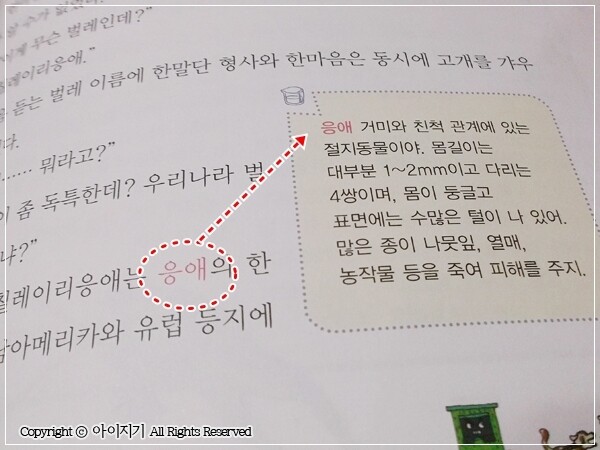 수가 없었다.
무슨 벌레인데?”
레이리응애.”
듣는 벌레 이름에 한말단 형사와 한마음은 동시에 고개를 갸우
다.
…… 뭐라고?”
좀 독특한데? 우리나라 벌
냐?”
칠레이리응애는 응애의 한
남아메리카와 유럽 등지에
응애 거미와 친척 관계에 있는
절지동물이야. 몸길이는
대부분 1~2mm이고 다리는
4쌍이며, 몸이 둥글고
표면에는 수많은 털이 나 있어.
많은 종이 나뭇잎, 열매,
농작물 등을 죽여 피해를 주지.
Copyright ⓒ 아이지기 All Rights Reserved